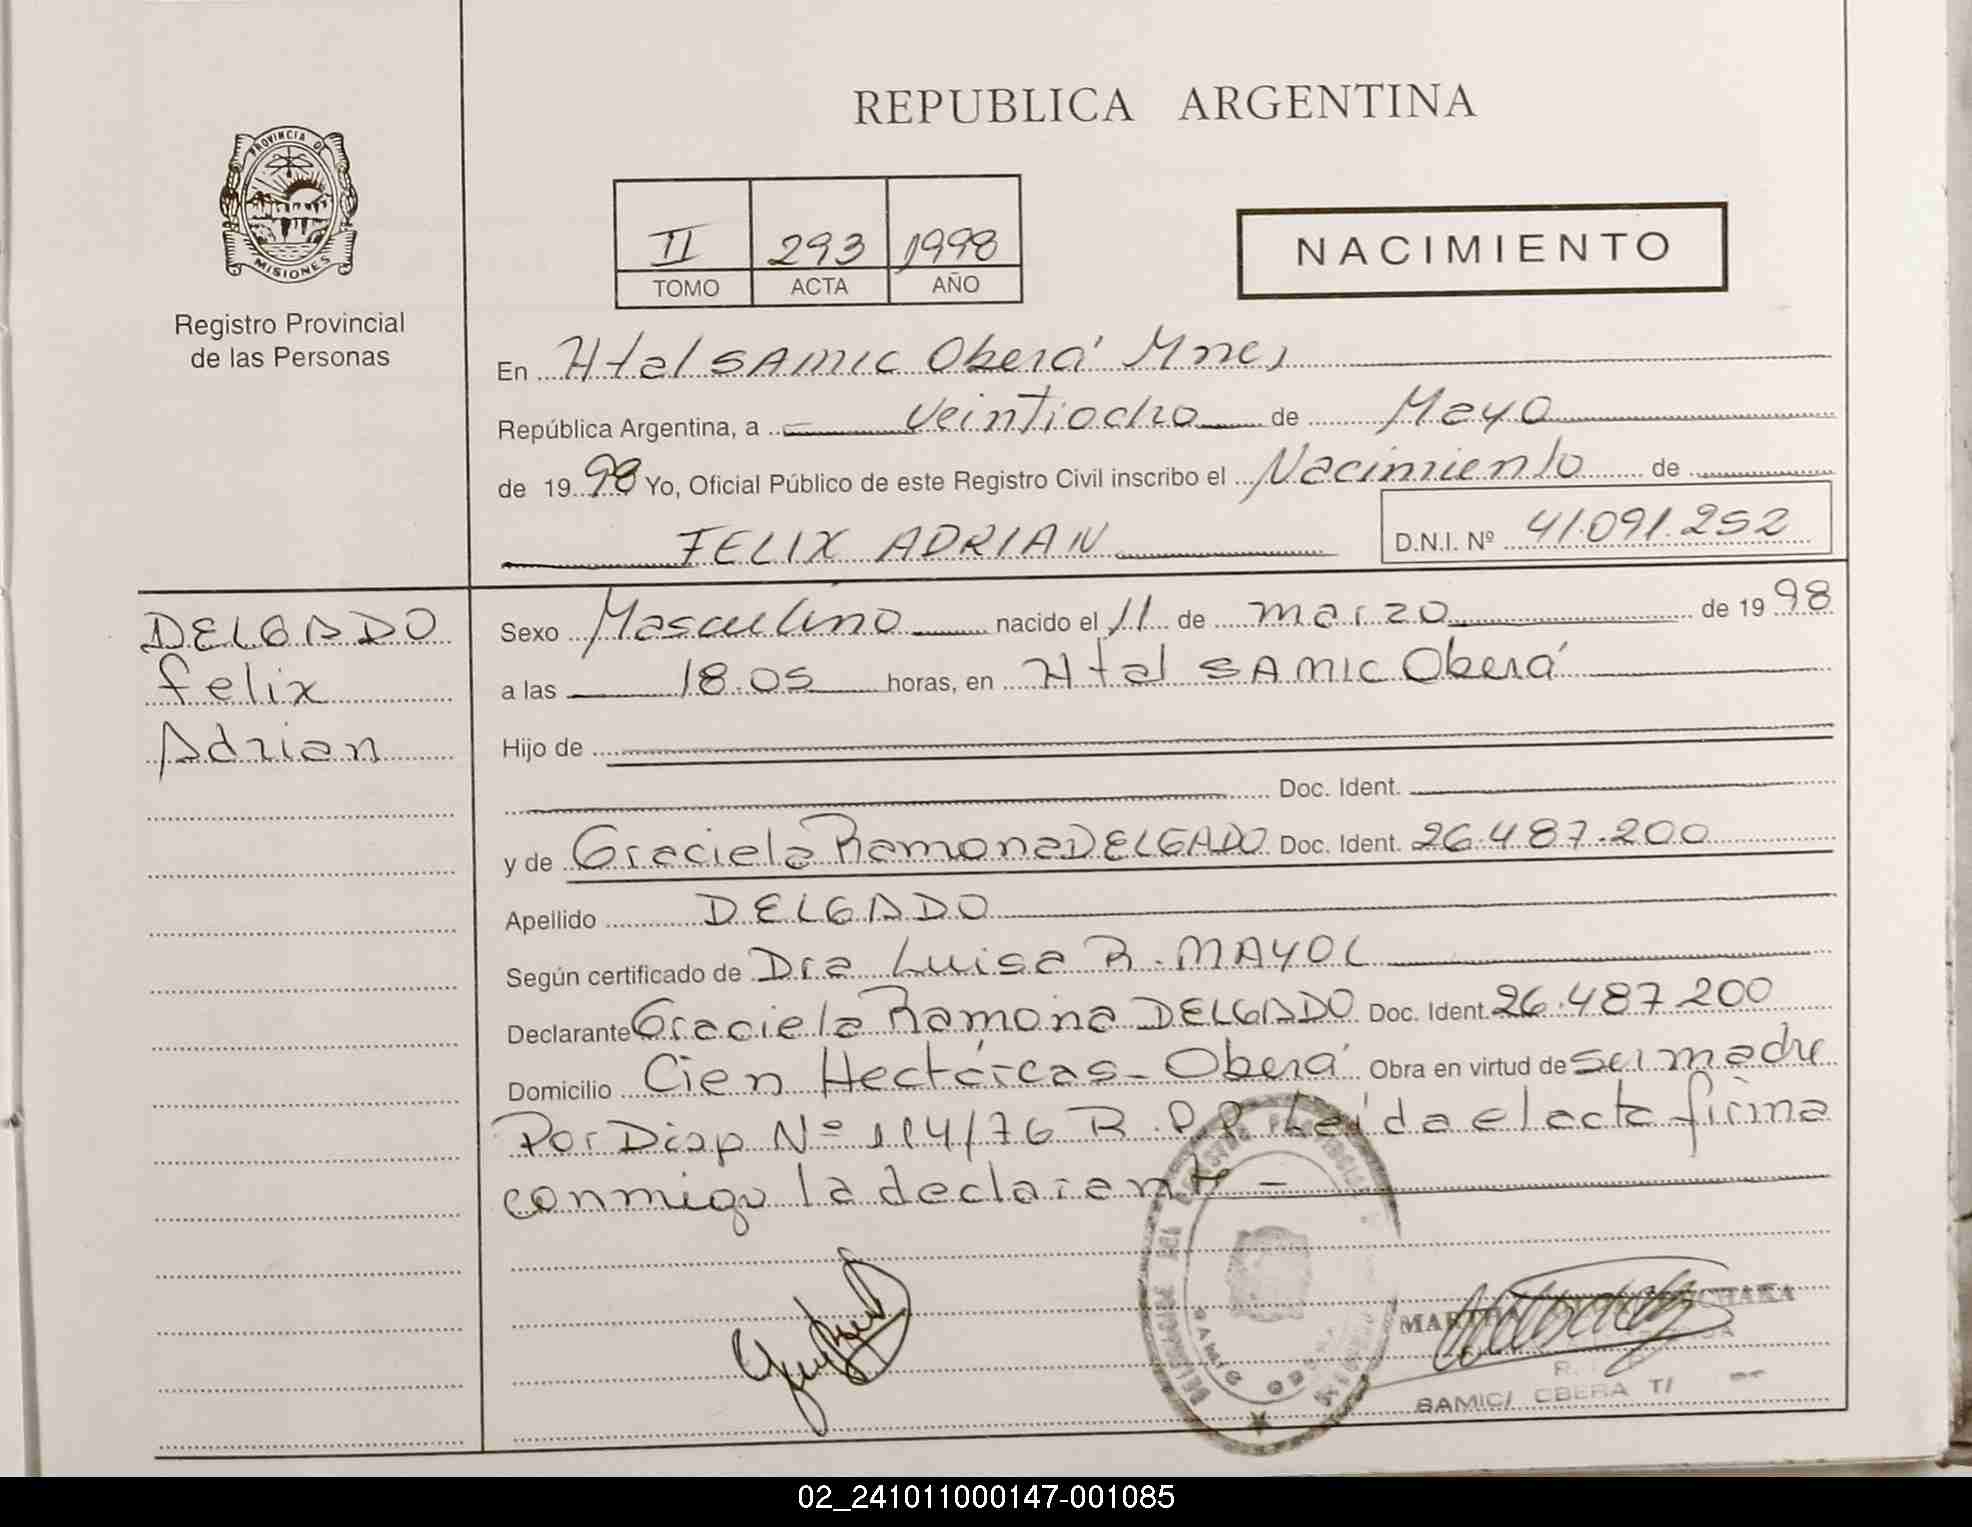 REPUBLICA ARGENTINA
PROVINCIA DE
MISIONES
Registro Provincial
de las Personas
II 293 1998
TOMO ACTA AÑO
NACIMIENTO
En Htal SAMIC Oberá Mnes
República Argentina, a veintiocho de Mayo
de 1998 Yo, Oficial Público de este Registro Civil inscribo el Nacimiento de
FELIX ADRIAN D.N.I. Nº 41.091.252
DELGADO
Felix
Adrian
Sexo Masculino nacido el 11 de marzo de 1998
a las 18.05 horas, en Htal SAMIC Oberá
Hijo de
Doc. Ident.
y de Graciela Ramona DELGADO Doc. Ident. 26.487.200
Apellido DELGADO
Según certificado de Dra Luisa R. MAYOL
Declarante Graciela Ramona DELGADO Doc. Ident. 26.487.200
Domicilio Cien Hectáreas - Oberá Obra en virtud de ser madre
Por Disp Nº 114/76 R.P.P. Leída el acta firma
conmigo la declarante -
SAMIC/ OBERA
02_241011000147-001085